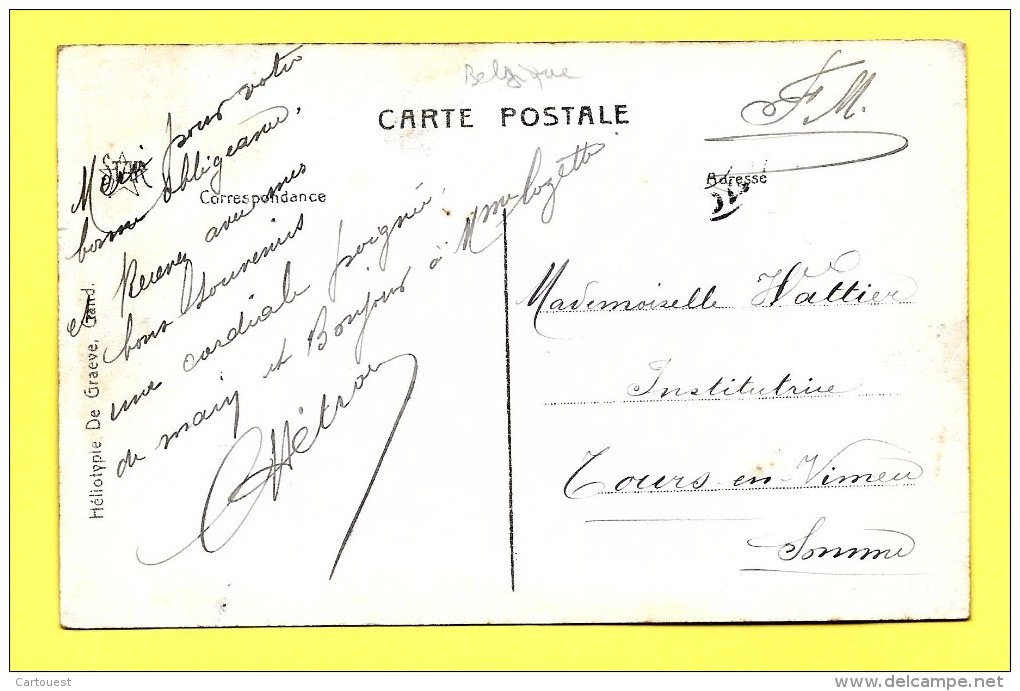 Belgique
CARTE POSTALE
F.M.
Correspondance
Adresse
Merci pour votre
bonne obligeance,
et Recevez avec mes
bons souvenirs
une cordiale poignée
de main et Bonjour à Mme
Mademoiselle Wattier
Institutrice
Tours-en-Vimeu
Somme
Héliotypie De Graeve, Gand.
Cartouest
www.delcampe.net